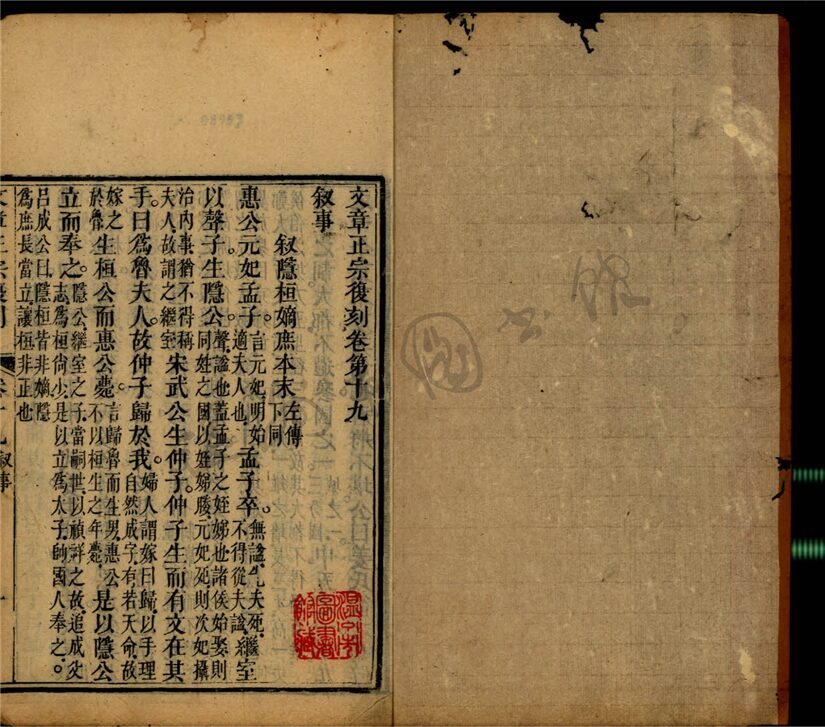 文章正宗復刻卷第十九
叙事
叙隱桓嫡庶本末左傳下同
惠公元妃孟子。言元妃明始適夫人也孟子卒。無謚先夫死不得從夫謚繼室
以聲子生隱公聲謚也蓋孟子之姪娣也諸侯始娶則同姓之國以姪娣媵元妃死則次妃攝
治內事猶不得稱夫人故謂之繼室宋武公生仲子。仲子生而有文在其
手曰爲魯夫人故仲子歸於我。婦人謂嫁曰歸以手理自然成字有若天命故
嫁之於魯生桓公而惠公薨。言歸魯而生男惠公不以桓生之年薨是以隱公
立而奉之。隱公繼室之子當嗣世以禎祥之故追成父志爲桓尚少是以立爲太子帥國人奉之。
呂成公曰隱桓皆非嫡隱爲庶長當立讓桓非正也
文章正宗復刻 卷十九 叙事 一
温州圖書館藏